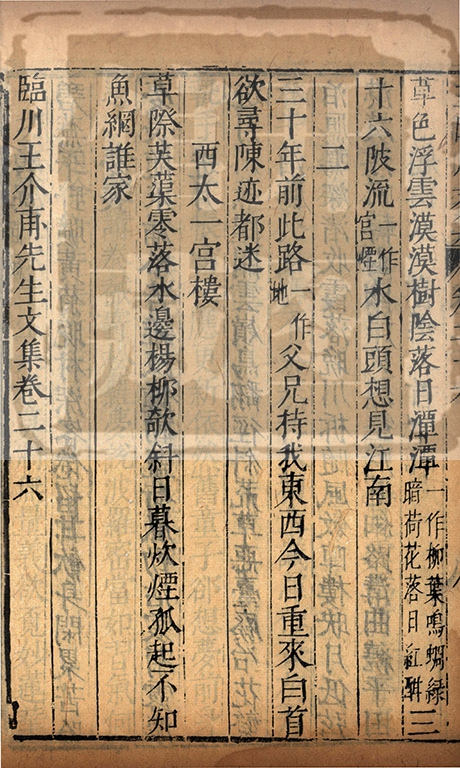 草色浮雲漠漠樹陰落日潭潭一作柳葉鳴蜩綠暗荷花落日紅酣
三
十六陂流一作宮煙水白頭想見江南
二
三十年前此路一作地父兄持我東西今日重來白首
欲尋陳迹都迷
西太一宮樓
草際芙蕖零落水邊楊柳欹斜日暮炊煙孤起不知
魚網誰家
臨川王介甫先生文集卷二十六